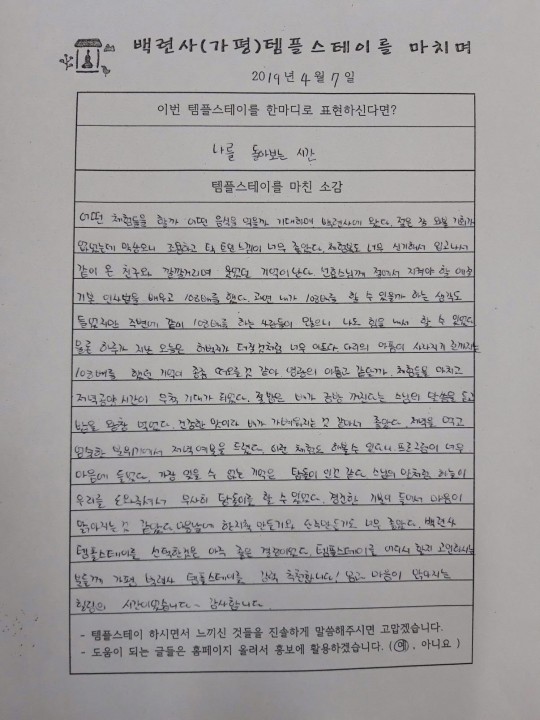 백련사(가평)템플스테이를 마치며
2019년 4월 7일
이번 템플스테이를 한마디로 표현하신다면?
나를 돌아보는 시간
템플스테이를 마친 소감
어떤 체험들을 할까 어떤 음식을 먹을까 기대하며 백련사에 왔다. 절은 참 와볼 기회가
없었는데 막상오니 조용하고 탁 트인 느낌이 너무 좋았다. 체험복도 너무 신기해서 입고나서
같이 온 친구와 깔깔거리며 웃었던 기억이 난다. 스님께 절에서 지켜야 할 예절
기본 인사법을 배우고 108배를 했다. 과연 내가 108배를 할 수 있을까 하는 생각도
들었지만 주변에 같이 108배를 하는 사람들이 많으니 나도 힘을 내서 할 수 있었다.
물론 하루가 지난 오늘은 허벅지가 터질것처럼 너무 아프다. 다리의 아픔이 사라지기 전까지는
108배를 했던 기억이 종종 떠오를 것 같아 영광의 아픔과 같달까. 체험들을 마치고
저녁공양시간이 무척 기대가 되었다. 절밥은 배가 금방 꺼진다는 스님의 말씀을 듣고
밥을 왕창 먹었다. 건강한 맛이라 배가 가벼워지는 것 같아서 좋았다. 저녁을 먹고
엄숙한 분위기에서 저녁예불을 드렸다. 이런 체험도 해볼 수 있다니 프로그램이 너무
마음에 들었다. 가장 잊을 수 없는 기억은 탑돌이 인것 같다. 스님의 말처럼 하늘이
우리를 도와주셔서 무사히 탑돌이를 할 수 있었다. 경건한 기분이 들어서 마음이
맑아지는 것 같았다. 다음날에 한지등 만들기와 염주만들기도 너무 좋았다. 백련사
템플스테이를 선택한것은 아주 좋은 경험이었다. 템플스테이를 어디서 할지 고민하시는
분들께 가평 백련사 템플스테이를 강력 추천합니다! 몸과 마음이 맑아지는
힐링의 시간이었습니다~ 감사합니다.
- 템플스테이 하시면서 느끼신 것들을 진솔하게 말씀해주시면 고맙겠습니다.
- 도움이 되는 글들은 홈페이지 올려서 홍보에 활용하겠습니다. (예, 아니요)